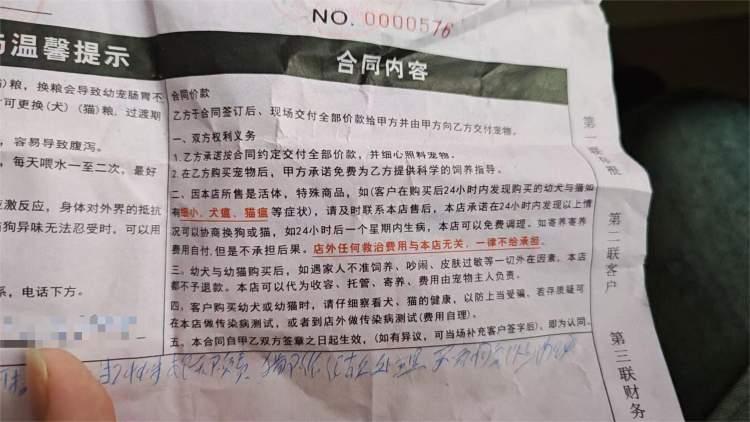 NO. 0000576
温馨提示
粮，换粮会导致幼宠肠胃不
可更换(犬)(猫)粮，过渡期
容易导致腹泻。
，每天喂水一至二次，最好
激反应，身体对外界的抵抗
狗异味无法忍受时，可以用
系，电话下方。
合同内容
合同价款
乙方于合同签订后、现场交付全部价款给甲方并由甲方向乙方交付宠物。
一、双方权利义务
1.乙方承诺按合同约定交付全部价款，并细心照料宠物。
2.在乙方购买宠物后，甲方承诺免费为乙方提供科学的饲养指导。
二、因本店所售是活体，特殊商品，如(客户在购买后24小时内发现购买的幼犬与猫如
有细小、犬瘟、猫瘟等症状)，请及时联系本店售后，本店承诺在24小时内发现以上情
况可以协商换狗或猫，如24小时后一个星期内生病，本店可以免费调理。如寄养寄养
费用自付,但是不承担后果。店外任何救治费用与本店无关，一律不给承担。
三、幼犬与幼猫购买后，如遇家人不准饲养、吵闹、皮肤过敏等一切外在因素。本店
都不予退款。本店可以代为收容、托管、寄养、费用由宠物主人负责。
四、客户购买幼犬或幼猫时，请仔细察看犬、猫的健康，以防上当受骗，若存质疑可
在本店做传染病测试，或者到店外做传染病测试(费用自理)。
五、本合同自甲乙双方签章之日起生效，(如有异议，可当场补充客户签字后)、即为认同。
第一联
第二联客户
第三联财务